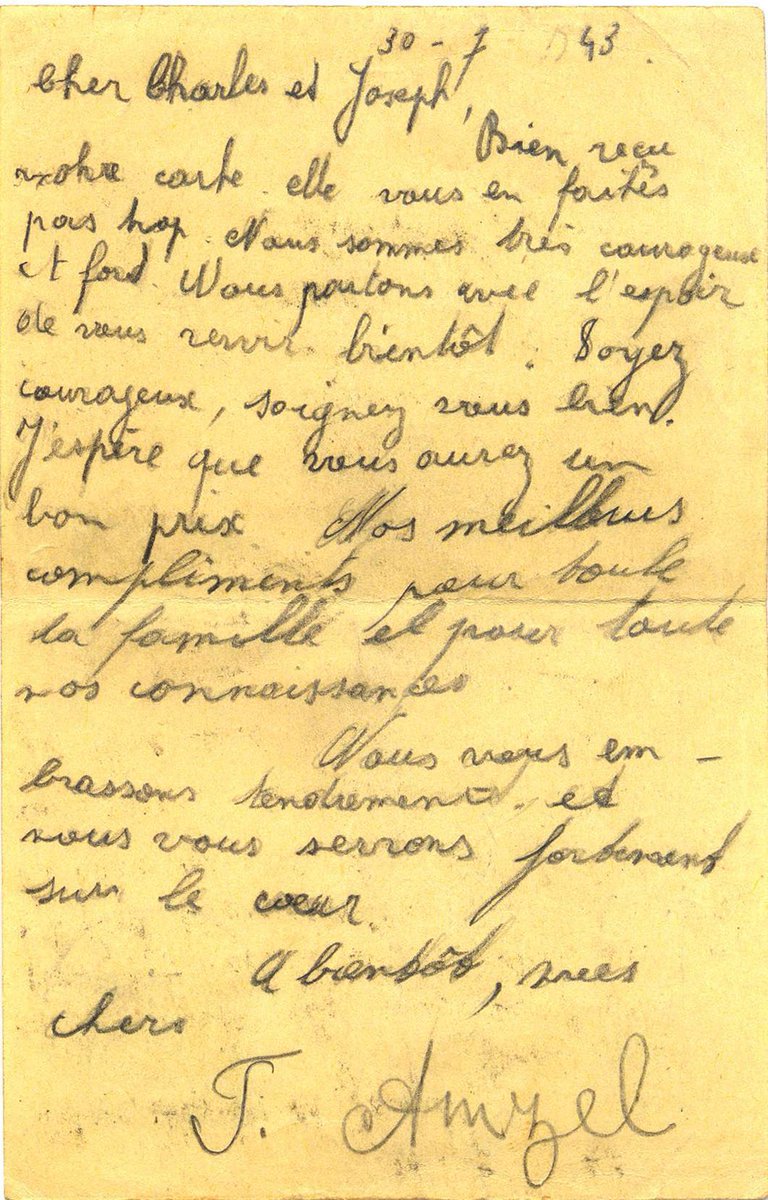 30 - 7 43.
Cher Charles et Joseph,
Bien reçu
votre carte. elle vous en faites
pas trop. Nous sommes très courageux
et ford. Nous partons avec l'espoir
de vous revrr bientôt. Soyez
courageux, soignez vous bien.
J'espère que vous aurez un
bon prix Nos meilleurs
compliments pour toute
la famille et pour toute
nos connaissances
Nous vous em -
brassons tendrement. et
nous vous serrons fortement
sur le cœur.
A bientôt, mes
chers
T. Amzel